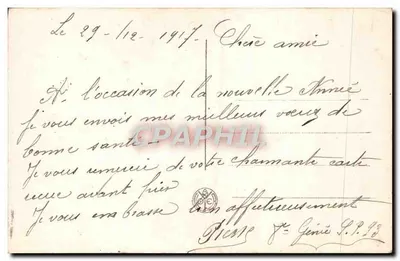 Le 29-/12-1917- Chère amie
A l'occasion de la nouvelle Année
je vous envois mes meilleurs vœux de
bonne santé -
Je vous remercie de votre charmante carte
reçue avant hier
Je vous embrasse bien affectueusement
Pierre 7e Génie S.P.93
CPAPHIL